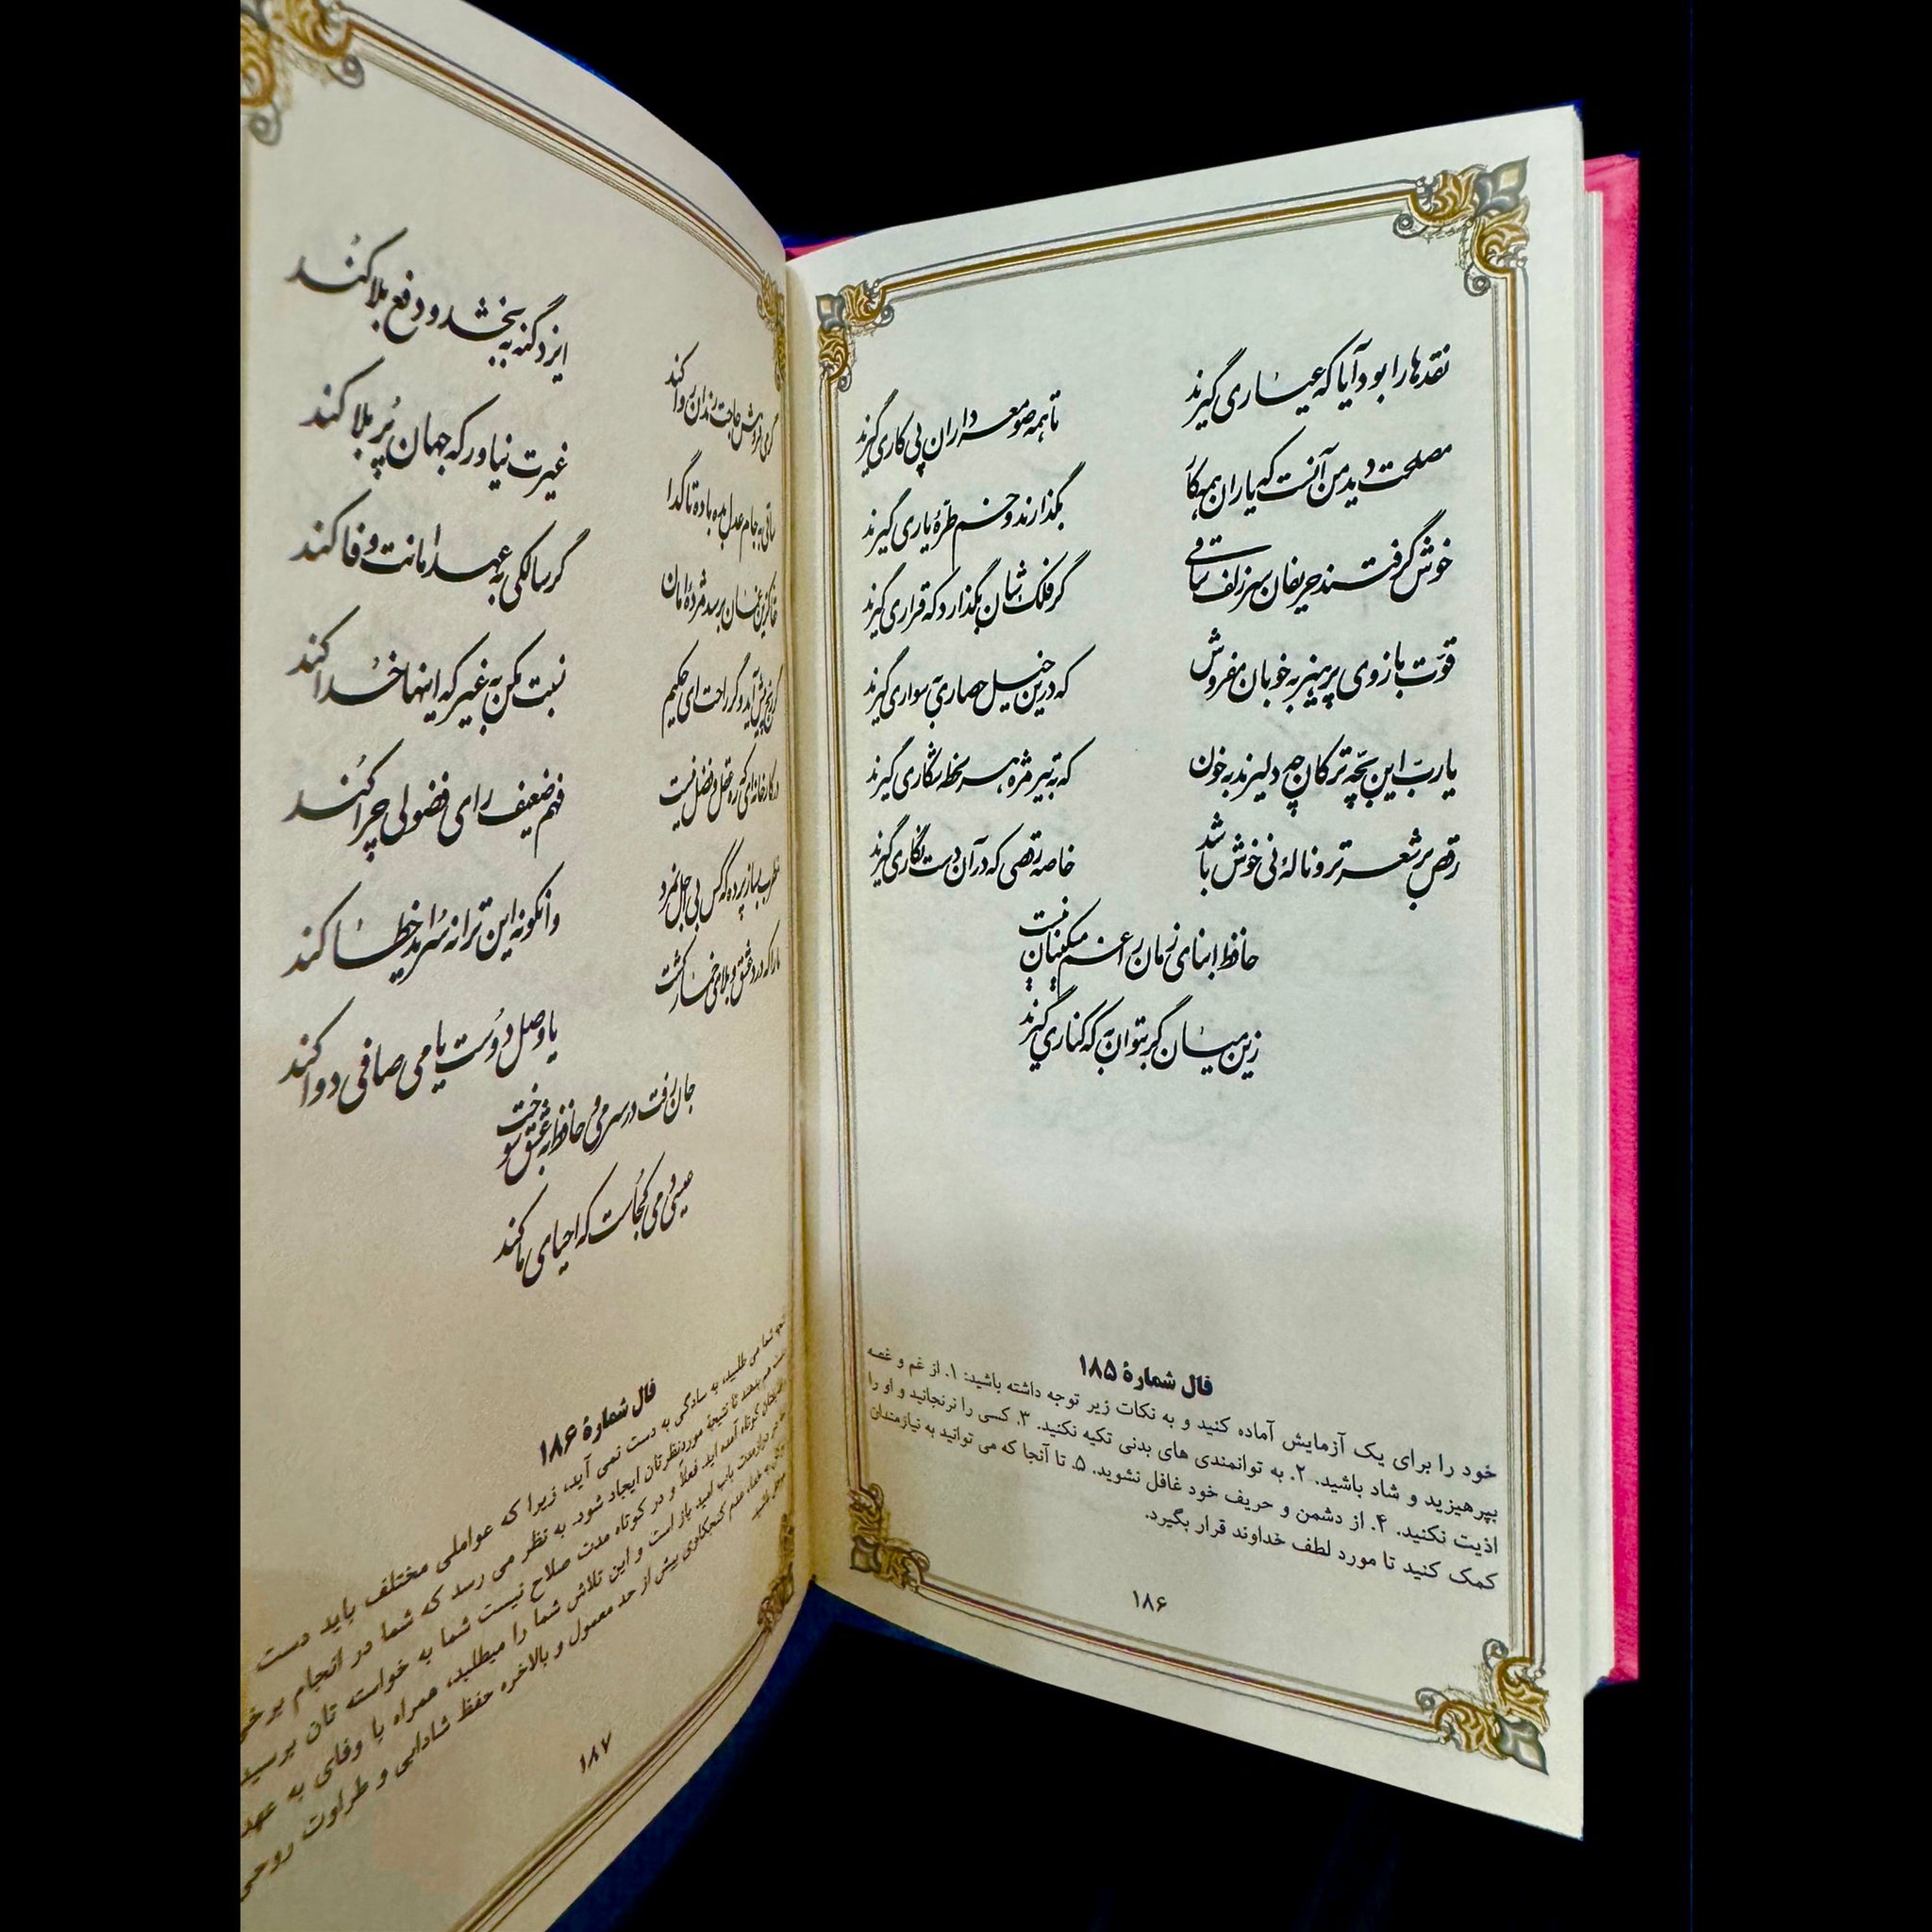 نقدها را بود آیا که عیاری گیرند تا همه صومعه داران پی کاری گیرند
مصلحت دید من آنست که یاران همه کار بگذارند و خم طرهٔ یاری گیرند
خوش گرفتند حریفان سر زلف ساقی گر فلکشان بگذارد که قراری گیرند
قوّت بازوی پرهیز به خوبان مفروش که درین خیل حصاری به سواری گیرند
یارب این بچّه ترکان چه دلیرند به خون که به تیر مژه هر لحظه شکاری گیرند
رقص بر شعر تر و نالهٔ نی خوش باشد خاصه رقصی که در آن دست نگاری گیرند
حافظ ابنای زمان را غم مسکینان نیست
زین میان گر بتوان به که کناری گیرند
فال شمارهٔ ۱۸۵
خود را برای یک آزمایش آماده کنید و به نکات زیر توجه داشته باشید: ۱. از غم و غصه
بپرهیزید و شاد باشید. ۲. به توانمندی های بدنی تکیه نکنید. ۳. کسی را نرنجانید و او را
اذیت نکنید. ۴. از دشمن و حریف خود غافل نشوید. ۵. تا آنجا که می توانید به نیازمندان
کمک کنید تا مورد لطف خداوند قرار بگیرد.
۱۸۶
گر می فروش حاجت رندان روا کند ایزد گنه ببخشد و دفع بلا کُند
ساقی به جام عدل بده باده تا گدا غیرت نیاورد که جهان پُر بلا کند
حقا کزین غمان برسد مژدهٔ امان گر سالکی به عهد امانت وفا کند
گر رنج پیش آید و گر راحت ای حکیم نسبت مکن به غیر که اینها خدا کند
در کارخانه ای که ره عقل و فضل نیست فهم ضعیف رای فضولی چرا کُند
مطرب بساز پرده که کس بی اجل نمرد وانکو نه این ترانه سُراید خطا کند
ما را که درد عشق و بلای خمار کشت یا وصل دوست یا می صافی دوا کند
جان رفت در سر می و حافظ به عشق سوخت
عیسی دمی کجاست که احیای ما کند
فال شمارهٔ ۱۸۶
شما می طلبید، به سادگی به دست نمی آید، زیرا که عواملی مختلف باید دست
هم بدهند تا نتیجهٔ موردنظرتان ایجاد شود. به نظر می رسد که شما در انجام برخی
کوتاه آمده اید. فعلاً و در کوتاه مدت صلاح نیست شما به خواسته تان برسید
باب امید باز است و این تلاش شما را میطلبد، همراه با وفای به عهد
عدم کنجکاوی بیش از حد معمول و بالاخره حفظ شادابی و طراوت روحی
۱۸۷